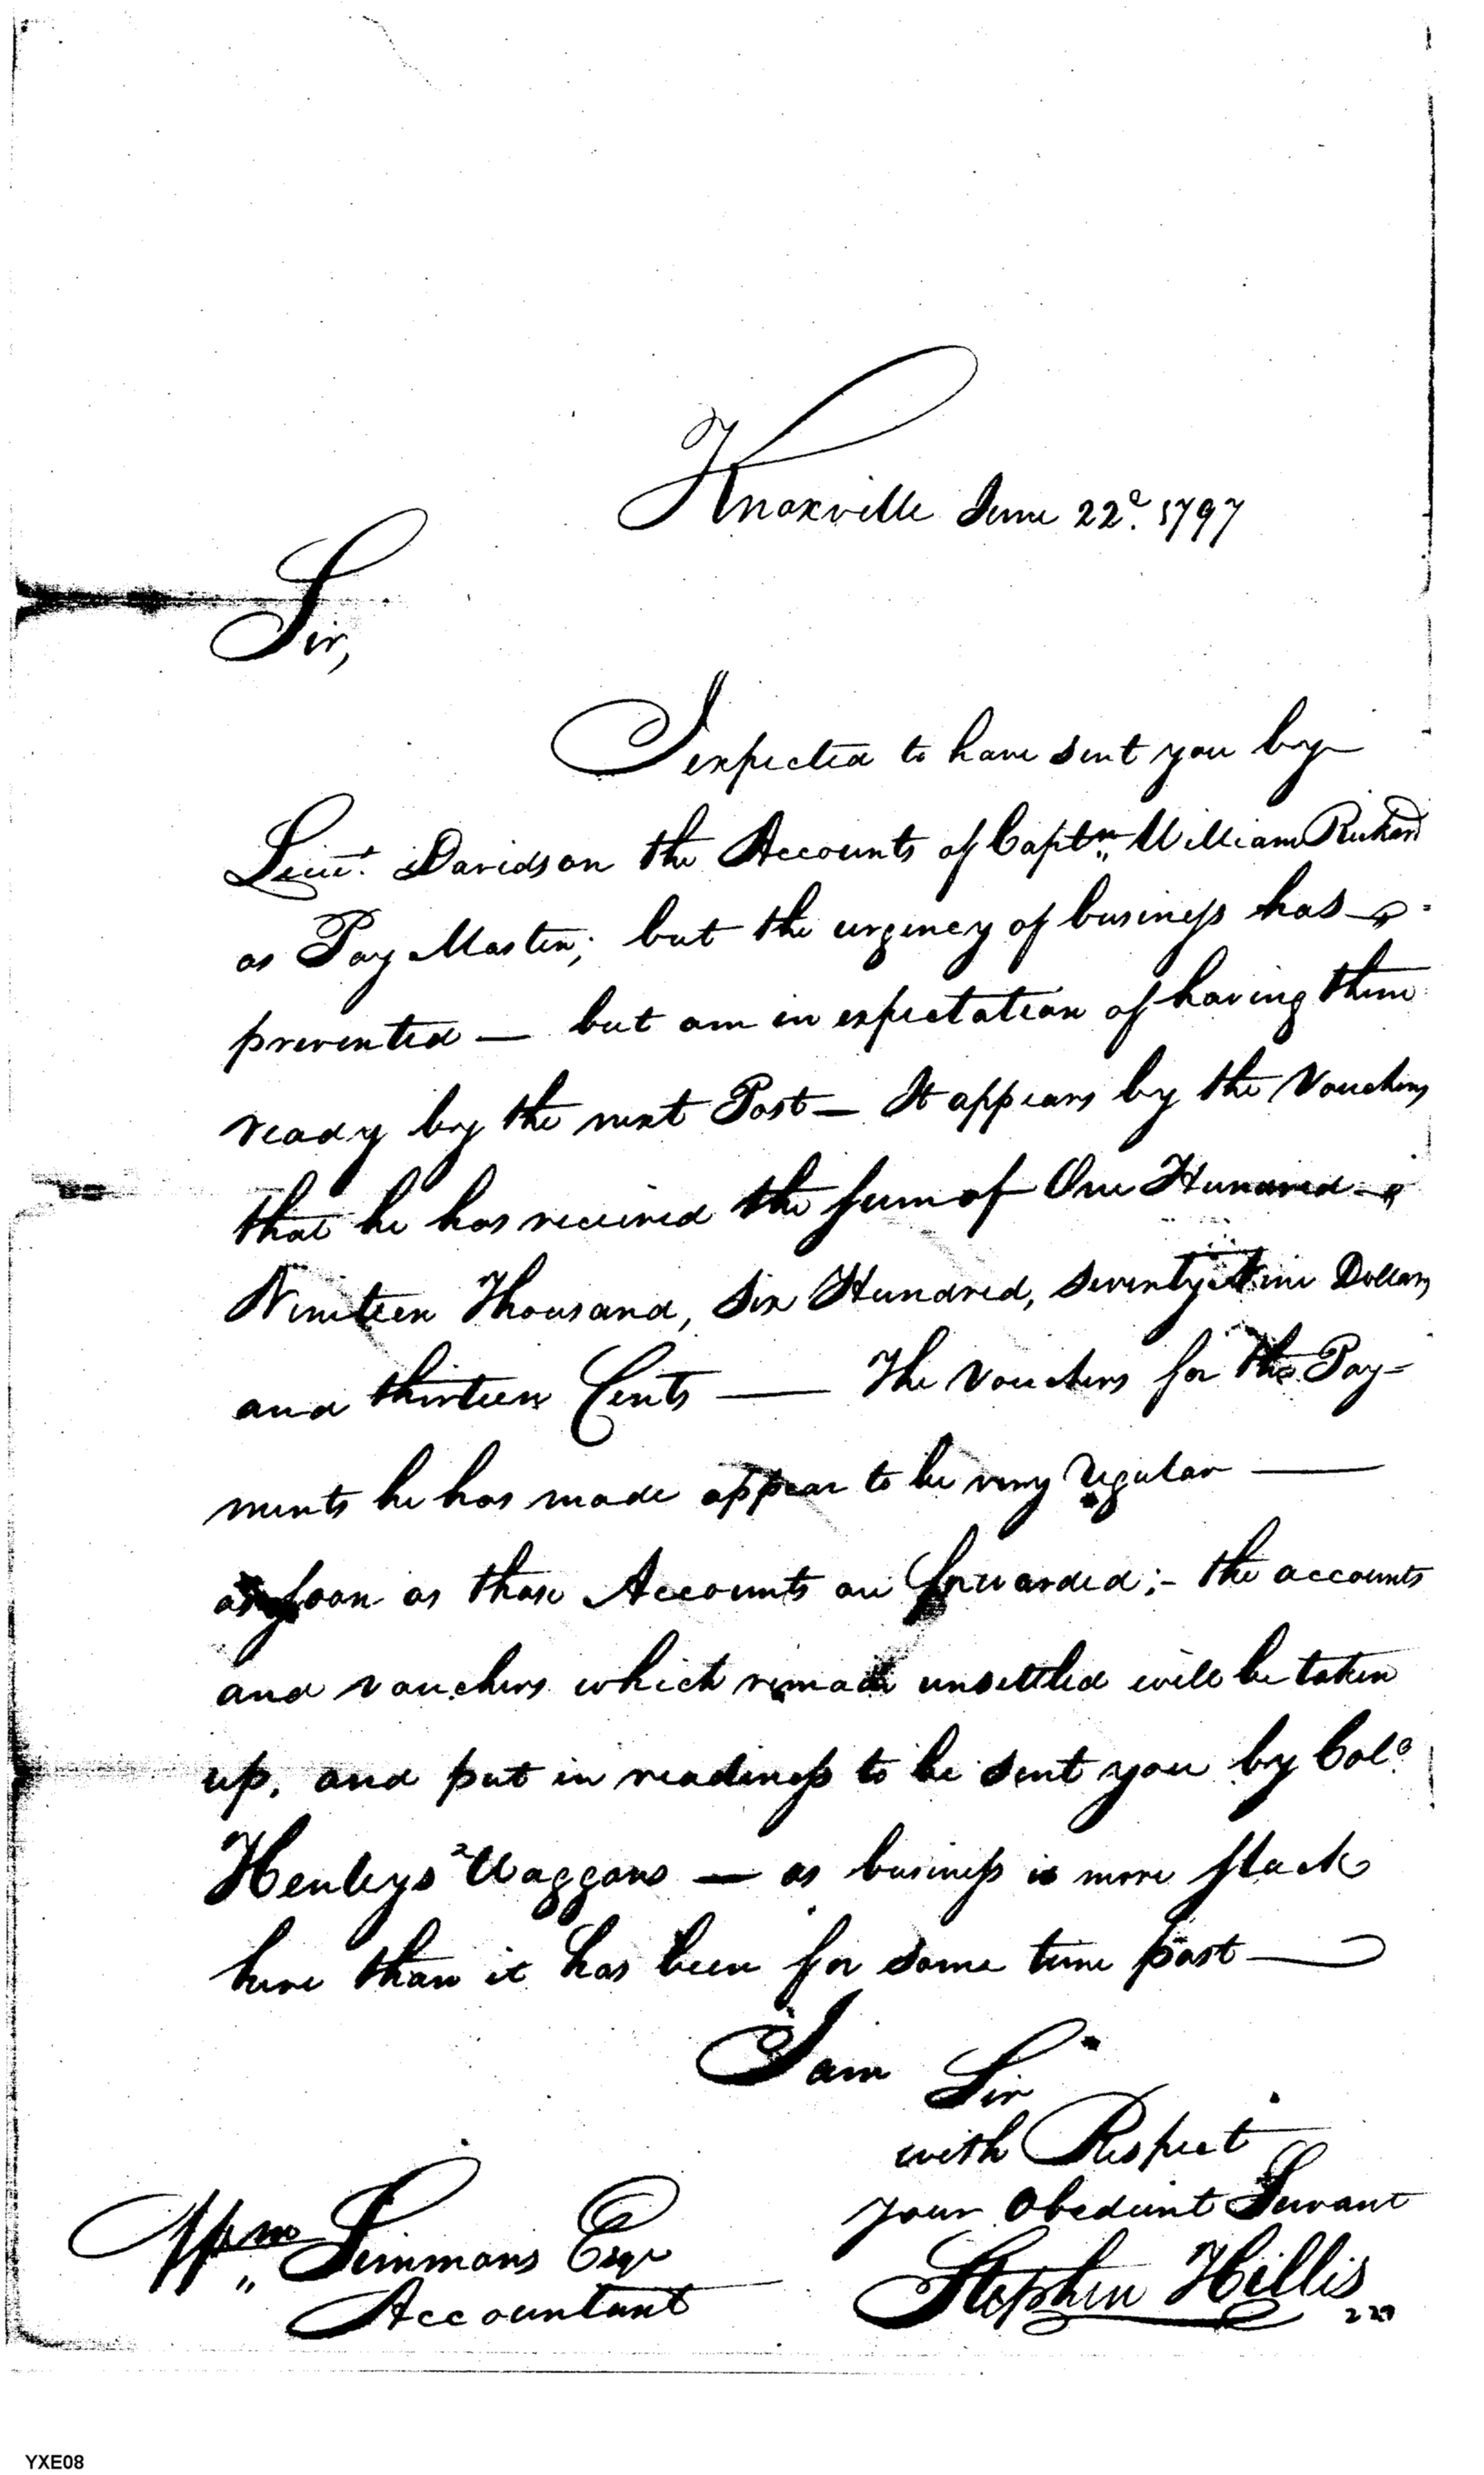 Knoxville June 22d. 1797
Sir,
I expected to have sent you by
Lieut. Davidson the Accounts of Captn. William Rickard
as Pay Master; but the urgency of business has
prevented — but am in expectation of having them
ready by the next Post — It appears by the Vouchers
that he has received the sum of One Hundred
Nineteen Thousand, Six Hundred, Seventy Nine Dollars
and thirteen Cents — The Vouchers for the Pay-
ments he has made appear to be very regular —
as soon as those Accounts are forwarded;- the accounts
and vouchers which remain unsettled will be taken
up, and put in readiness to be sent you by Colo.
Henleys Waggons — as business is more slack
here than it has been for some time past —
I am Sir
with Respect
your Obedient Servant
Wm Simmons Esqr
Stephen Hillis
Accountant
229
YXE08